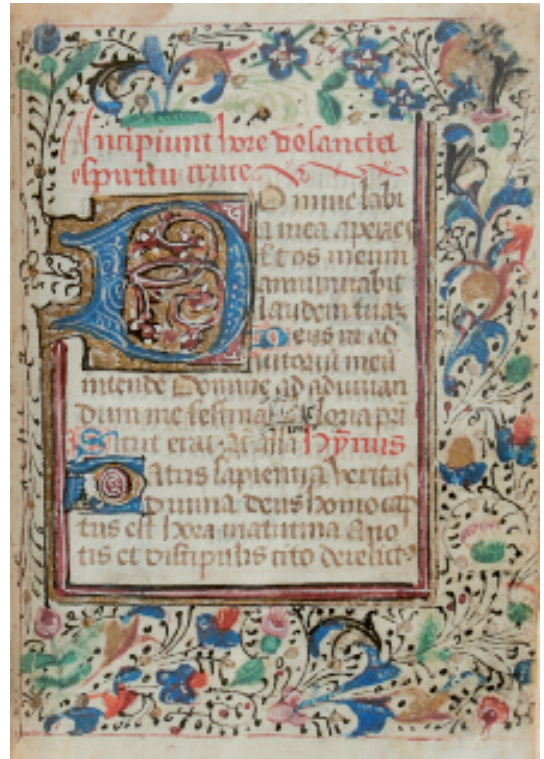 Incipiunt hore de sancta
spiritu cruce
Domine labi
a mea aperies
Et os meum
annunciabit
laudem tuaz
Deus in ad
iutoriū meū
intende Domine ad adiuvan
dum me festina Gloria pri
Sicut erat Hymus
Patris sapientia veritas
divina deus homo cap
tus est hora matutina A no
tis et discipulis cito derelict